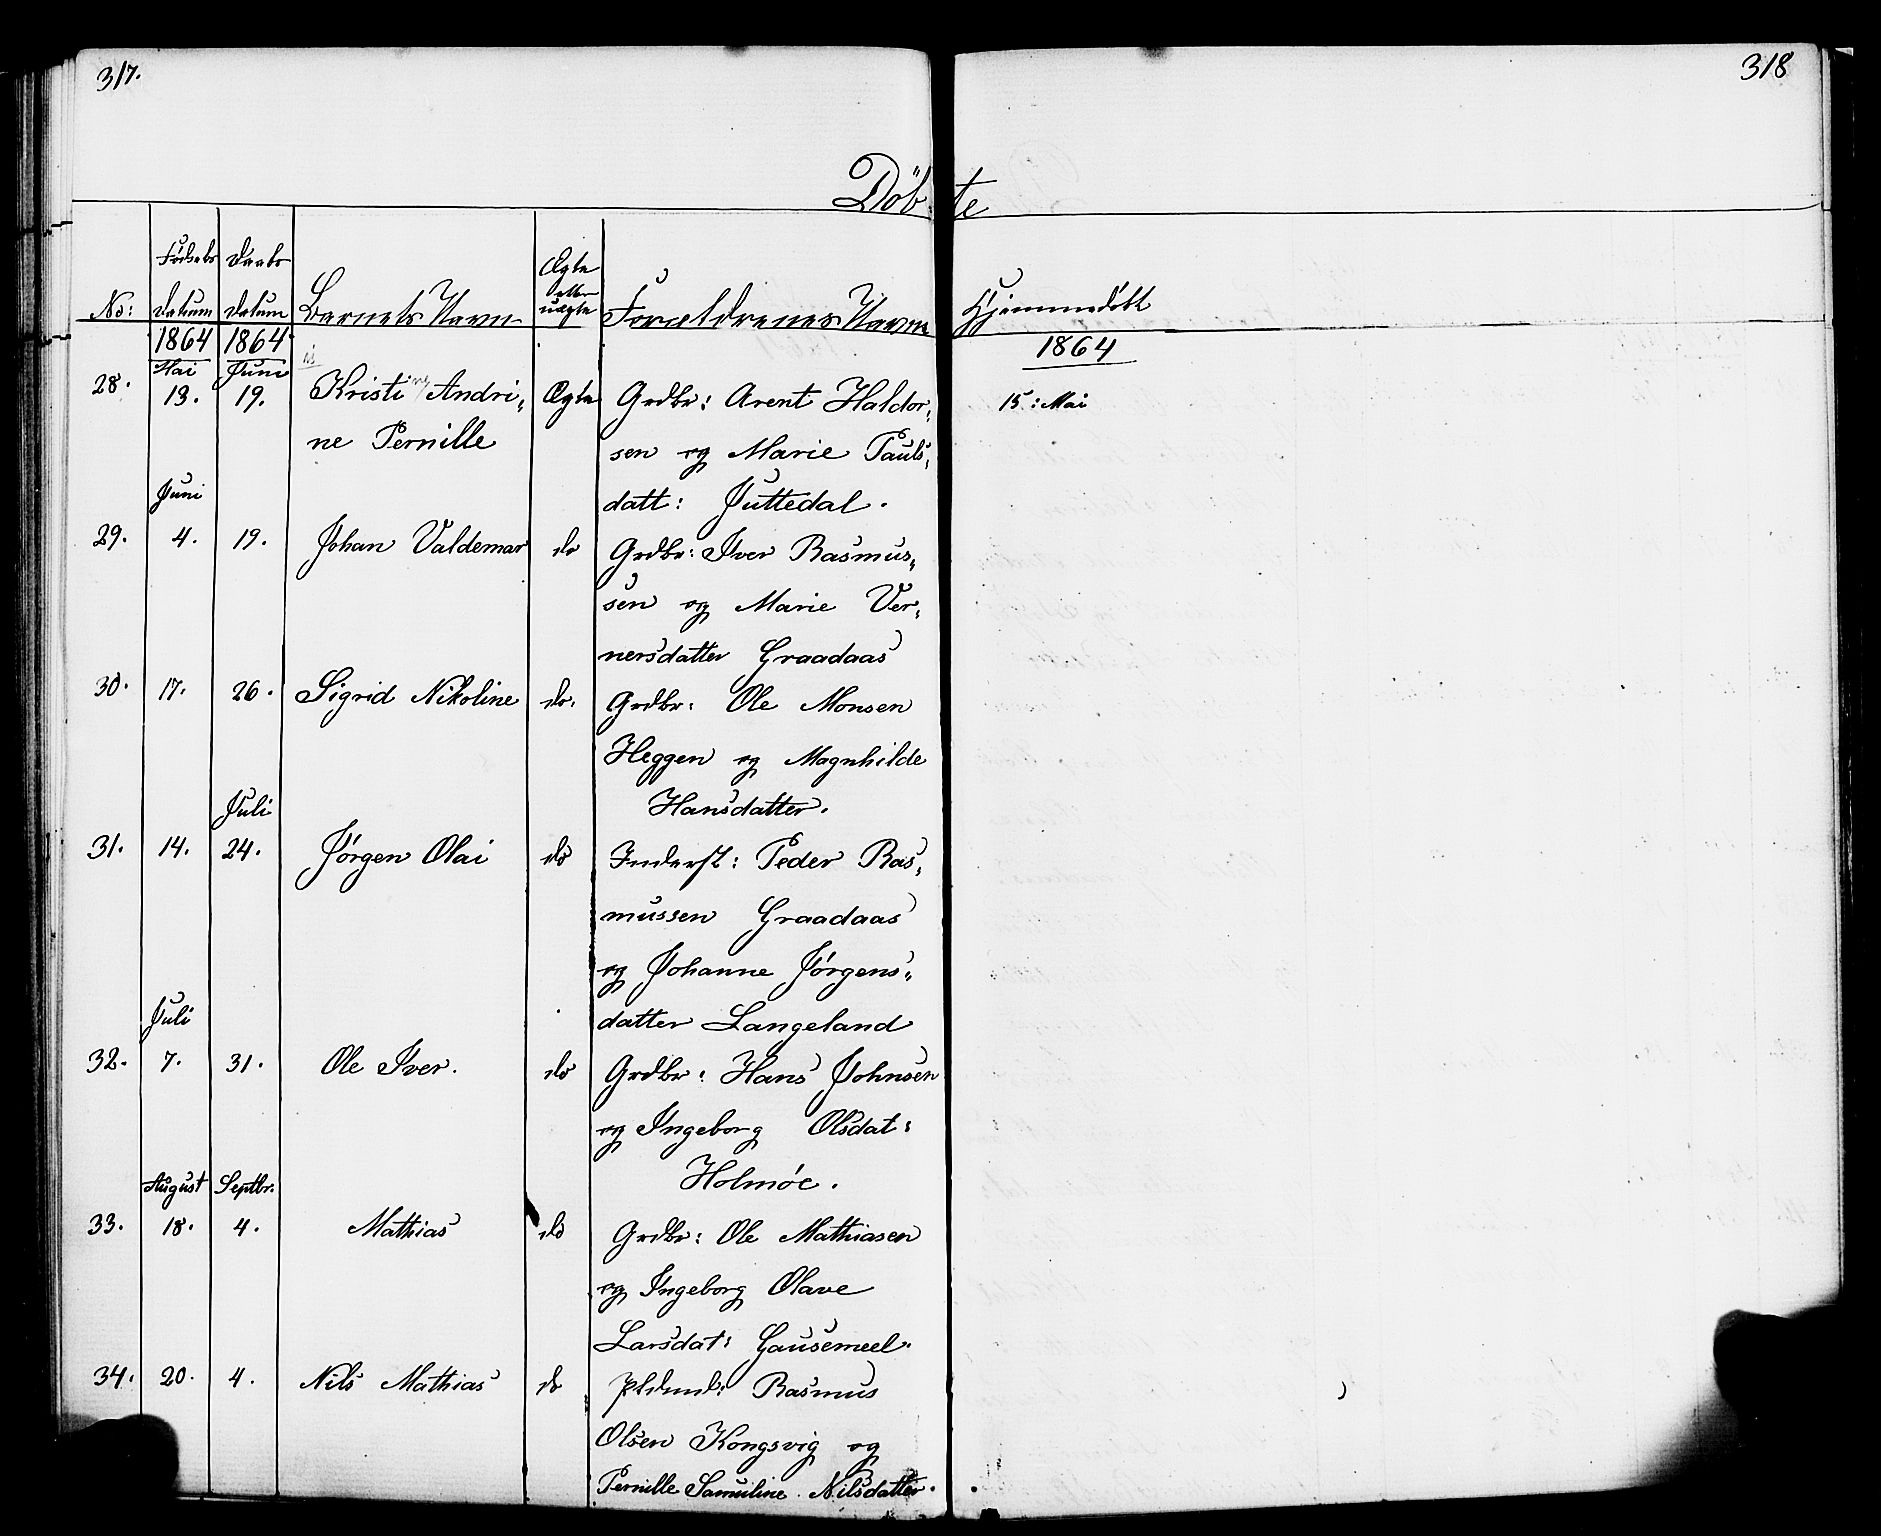 317.
318
Döbte
No: Fødsels datum Daabs datum Barnets Navn Ægte eller uægte Forældrenes Navn Hjemmedöbt
1864 1864 1864
Mai Juni
28. 13. 19. Kristine Andri„ Ægte Grdbr: Arent Haldor„ 15: Mai
ne Pernille sen og Marie Pauls„
Juni datt: Juttedal.
29. 4. 19. Johan Valdemar do Grdbr: Iver Rasmus„
sen og Marie Ver„
nersdatter Graadaas
30. 17. 26. Sigrid Nikoline do. Grdbr: Ole Monsen
Heggen og Magnhilde
Juli Hansdatter.
31. 14. 24. Jørgen Olai do Inderst: Peder Ras„
mussen Graadaas
og Johanne Jørgens„
Juli datter Langeland
32. 7. 31. Ole Iver. do Grdbr: Hans Johnsen
og Ingeborg Olsdat:
August Septbr. Holmöe.
33. 18. 4. Mathias do Grdbr: Ole Mathiasen
og Ingeborg Olave
Larsdat: Gausemeel.
34. 20. 4. Nils Mathias do Rasmus
Olsen Kongsvig og
Pernille Samuiline Nilsdatter.